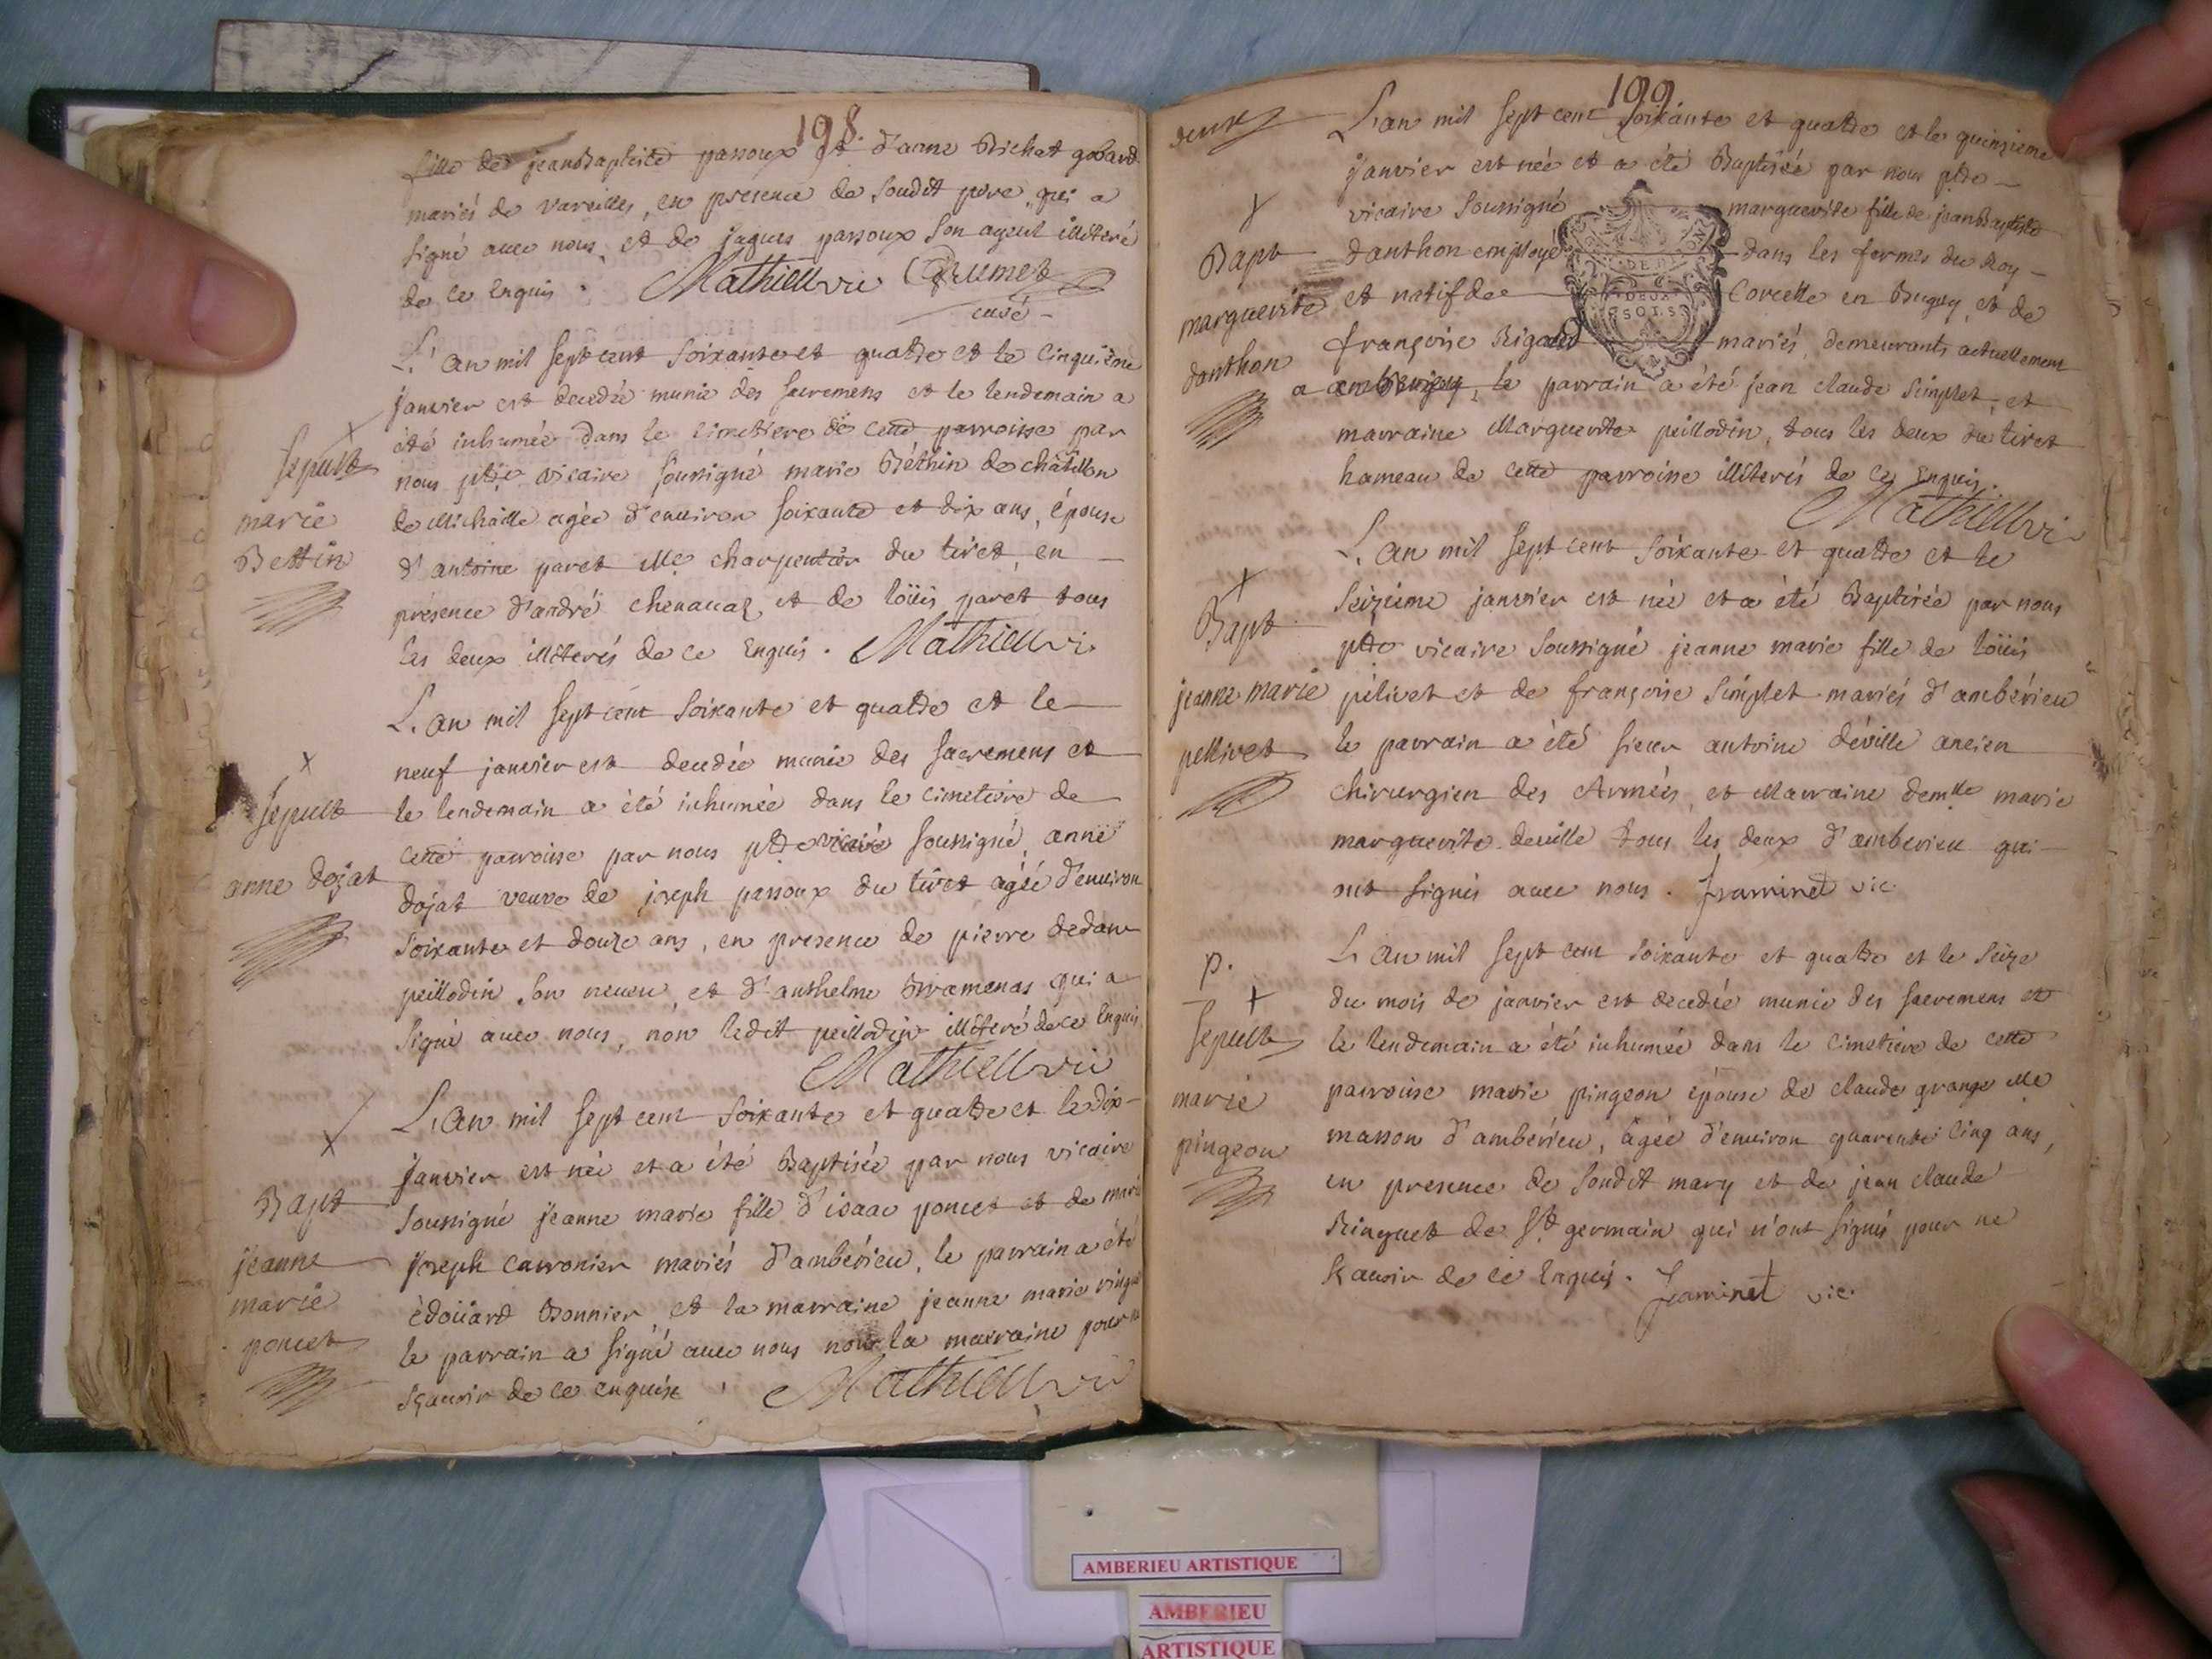 198.
fille de jeanBaptiste passoux et d'anne Brichat gobard
mariés de vareilles, en presence de Soudit pere, qui a
signé avec nous, et de jaques passoux Son ayeul illiteré
de ce Enquis. Mathieu vic Grumet
curé
L'an mil Sept cent Soixante et quatre et le Cinquième
janvier est decedée munie des sacremens et le lendemain a
été inhumée dans le Cimetiere de cette parroisse par
Sepult
nous ptre vicaire soussigné marie Béthin de châtillon
marie
de Michaille agée d'environ soixante et dix ans, épouse
Bettin
d'antoine paret Me charpentier du tiret, en
présence d'andré chenavaz, et de loüis paret tous
les deux illiterés de ce Enquis. Mathieu vi
L'an mil Sept cent Soixante et quatre et le
neuf janvier est decedée munie des Sacremens et
Sepult
le lendemain a été inhumée dans le cimetiere de
cette parroisse par nous ptre vicaire soussigné, anne
anne dojat
dojat veuve de joseph passoux du tiret agée d'environ
Soixante et douze ans, en presence de pierre dedan
peillodin son neveu, et d'anthelme Bramenas qui a
Signé avec nous, non ledit peillodin illiteré de ce Enquis
Mathieu vic
L'an mil Sept cent Soixante et quatre et le dix
janvier est née et a été Baptisée par nous vicaire
Bapt
Soussigné jeanne marie fille d'isaac poncet et de marie
jeanne
joseph carronier mariés d'ambérieu, le parrain a été
marie
édoüard Bonnier, et la marraine jeanne marie
poncet
le parrain a signé avec nous non la marraine pour ne
Sçavoir de ce enquise. Mathieu vic
199
deux
L'an mil Sept cent Soixante et quatre et le quinzieme
janvier est née et a été Baptisée par nous ptre
vicaire Soussigné marguerite fille de jeanBaptiste
Bapt
danthon employé dans les fermes du Roy
marguerite
et natif de Corcelle en Bugey, et de
danthon
françoise Rigaud mariés, demeurants actuellement
DEUX
SOLS
a ambérieu, le parrain a été jean claude Simplet, et
marraine Marguerite peillodin, tous les deux du tiret
hameau de cette parroisse illiterés de ce Enquis.
Mathieu vi
L'an mil Sept cent Soixante et quatre et le
Seizieme janvier est née et a été Baptisée par nous
Bapt
ptre vicaire Soussigné jeanne marie fille de loüis
jeanne marie
pélivet et de françoise Simplet mariés d'ambérieu
pellivet
le parrain a été sieur antoine déville ancien
chirurgien des Armées, et Marraine demlle marie
marguerite deville tous les deux d'amberieu qui
ont signés avec nous. Jeaminet vic
p.
L'an mil Sept cent Soixante et quatre et le Seize
du mois de janvier est decedée munie des sacremens et
Sepult
le lendemain a été inhumée dans le Cimetiere de cette
marie
parroisse marie pingeon épouse de claude grange Me
pingeon
masson d'amberieu, âgée d'environ quarente cinq ans,
en presence de Soudit mary et de jean claude
Ringuet de St germain qui n'ont signés pour ne
Sçavoir de ce Enquis. Jeaminet vic.
AMBERIEU ARTISTIQUE
AMBERIEU
ARTISTIQUE